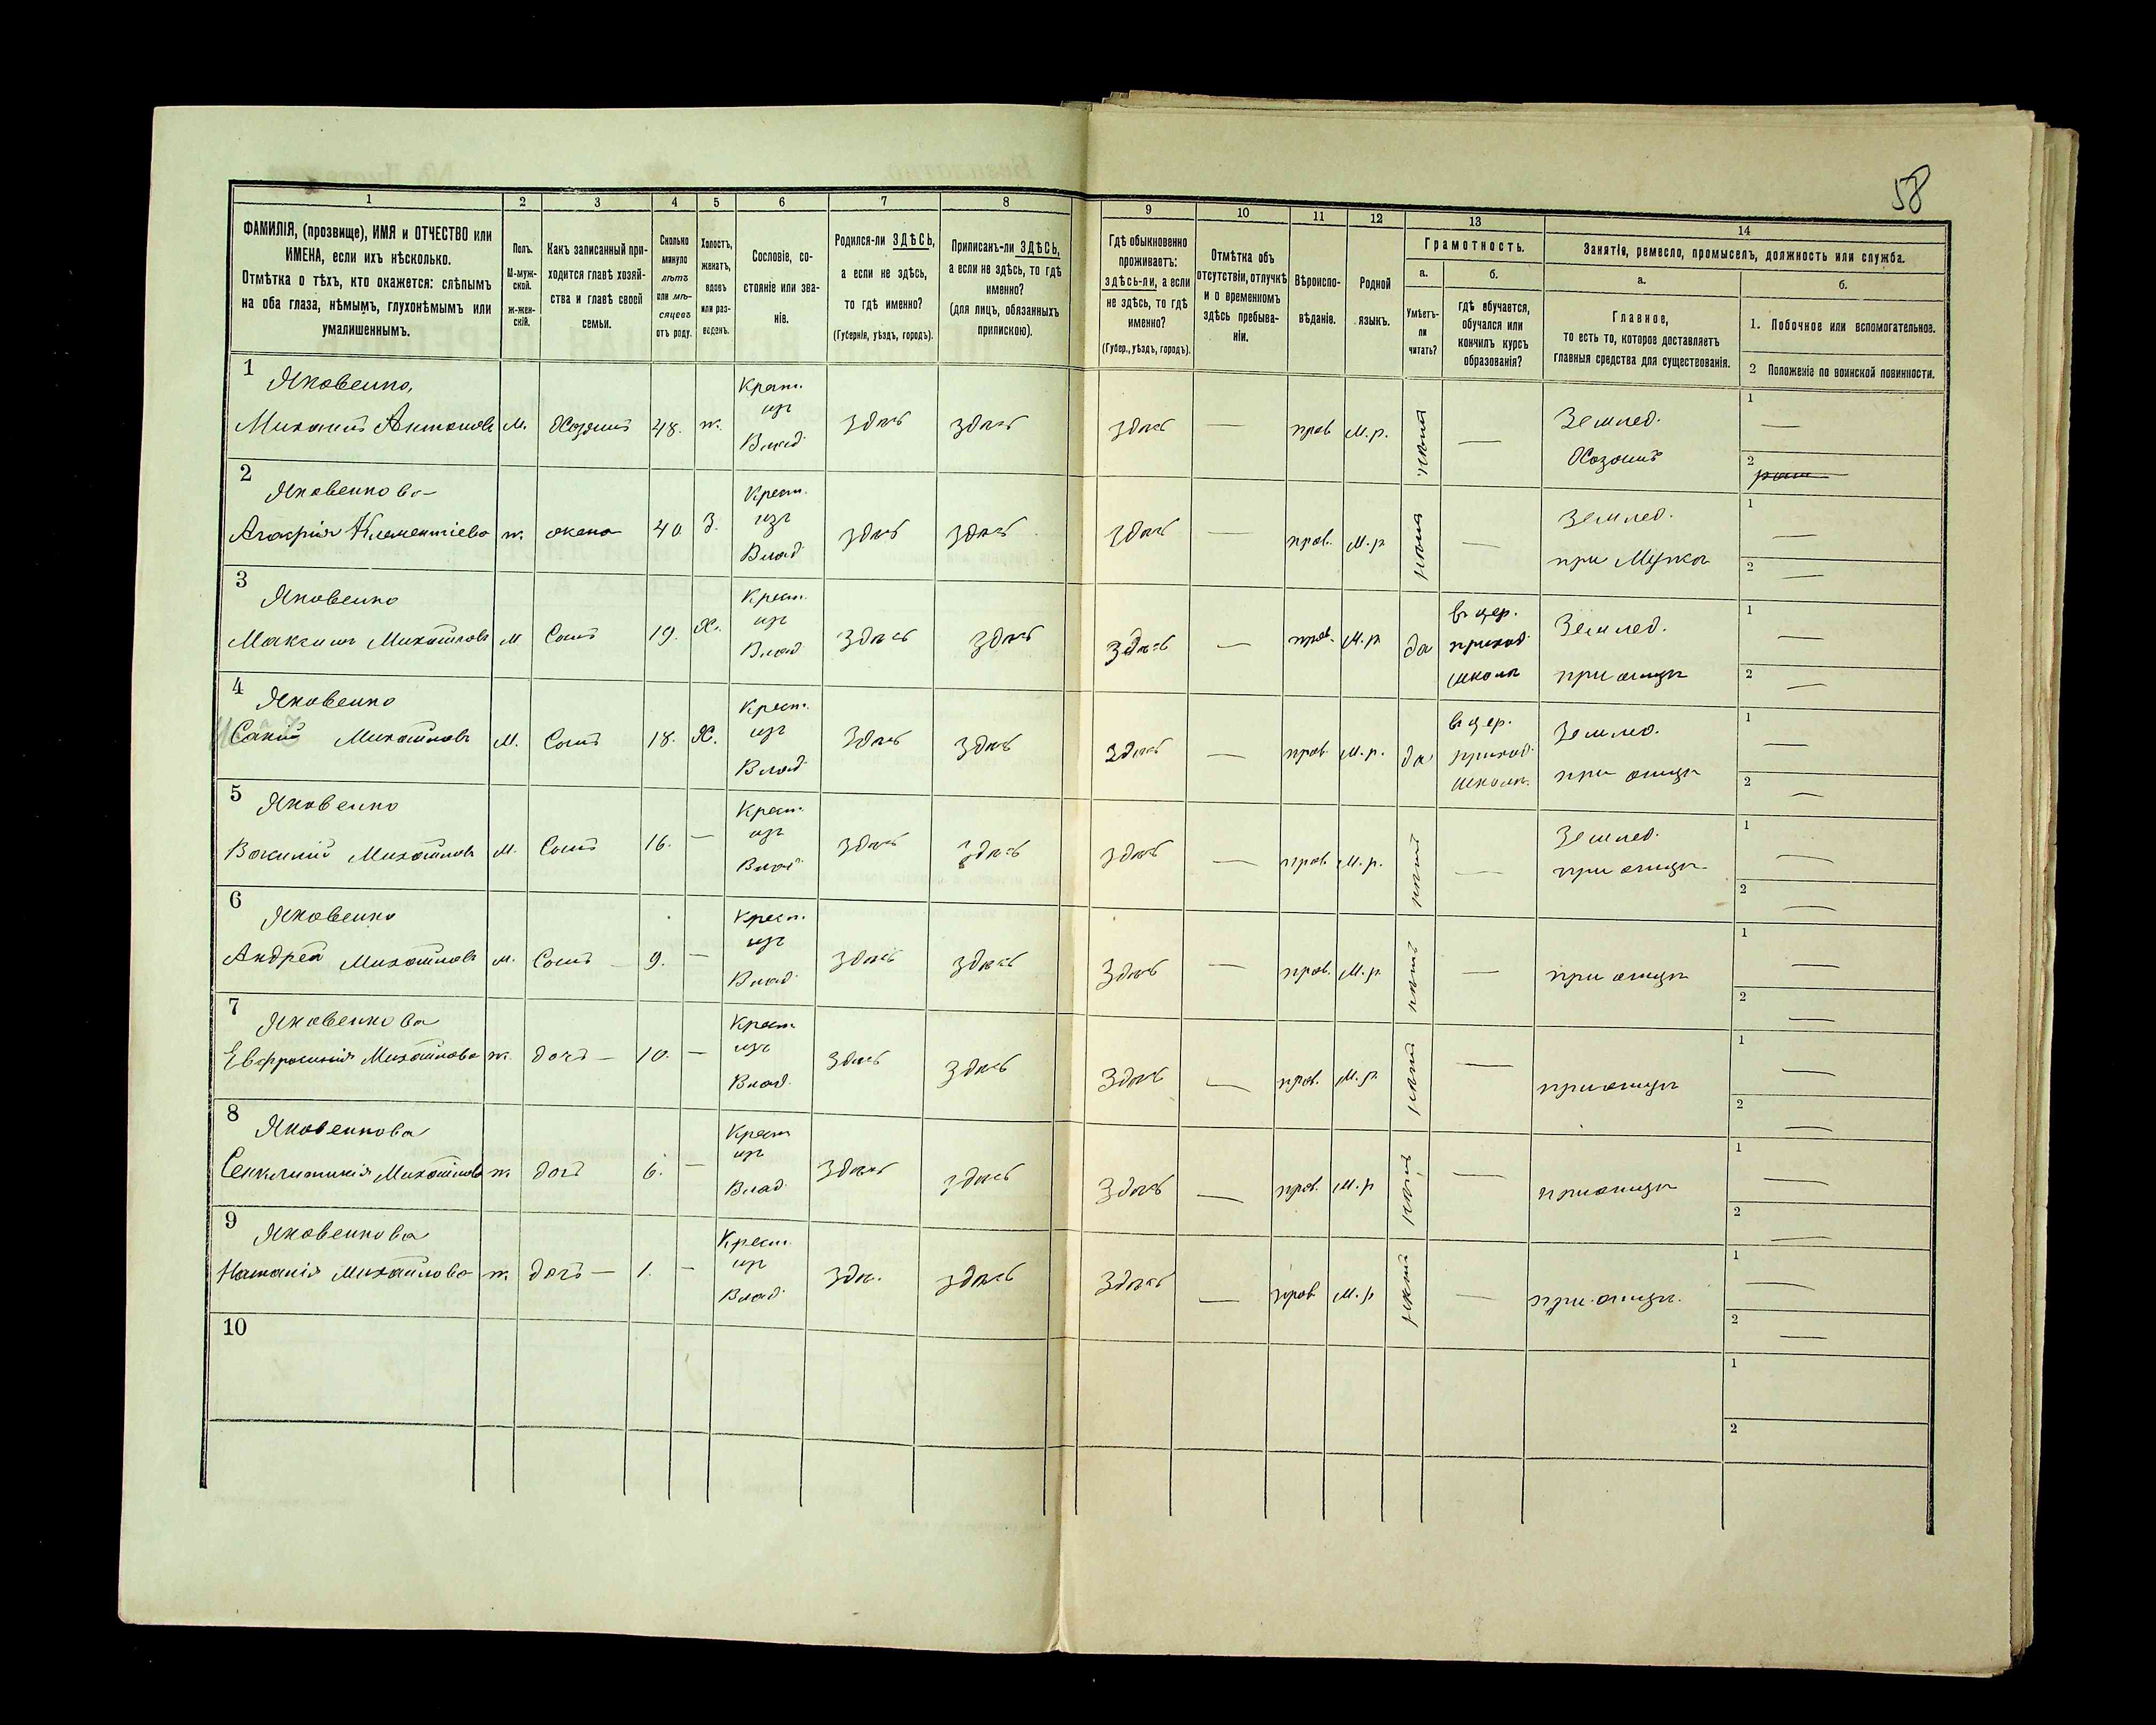 58
1 2 3 4 5 6 7 8 9 10 11 12 13 14
ФАМИЛІЯ, (прозвище), ИМЯ и ОТЧЕСТВО или
ИМЕНА, если ихъ нѣсколько.
Отмѣтка о тѣхъ, кто окажется: слѣпымъ
на оба глаза, нѣмымъ, глухонѣмымъ или
умалишеннымъ.
Полъ.
М-муж-
ской.
ж-жен-
скій.
Какъ записанный при-
ходится главѣ хозяй-
ства и главѣ своей
семьи.
Сколько
минуло
лѣтъ
или мѣ-
сяцевъ
отъ роду.
Холостъ,
женатъ,
вдовъ
или раз-
веденъ.
Сословіе, со-
стояніе или зва-
ніе.
Родился-ли ЗДѢСЬ,
а если не здѣсь,
то гдѣ именно?
(Губернія, уѣздъ, городъ).
Приписанъ-ли ЗДѢСЬ,
а если не здѣсь, то гдѣ
именно?
(для лицъ, обязанныхъ
припискою).
Гдѣ обыкновенно
проживаетъ:
здѣсь-ли, а если
не здѣсь, то гдѣ
именно?
(Губер., уѣздъ, городъ).
Отмѣтка объ
отсутствіи, отлучкѣ
и о временномъ
здѣсь пребыва-
ніи.
Вѣроиспо-
вѣданіе.
Родной
языкъ.
Грамотность.
а.
Умѣетъ-
ли
читать?
б.
гдѣ обучается,
обучался или
кончилъ курсъ
образованія?
Занятіе, ремесло, промыселъ, должность или служба.
а.
Главное,
то есть то, которое доставляетъ
главныя средства для существованія.
б.
1. Побочное или вспомогательное.
2 Положеніе по воинской повинности.
1 Яковенко,
Михаилъ Антоновъ м. Хозяинъ 48. ж. Крест. изъ Влад. здѣсь здѣсь здѣсь — прав М.р. нѣтъ — Землед. Хозяинъ 1 — 2
2 Яковенкова
Агафия Клементіева ж. жена 40 З. Крест. изъ Влад здѣсь здѣсь здѣсь — прав. М.р нѣтъ — Землед. при Мужѣ 1 — 2 —
3 Яковенко
Максимъ Михайловъ м Сынъ 19. Х. Крест. изъ Влад здѣсь здѣсь здѣсь — прав. М.р да въ цер. приход. школѣ Землед. при отцѣ 1 — 2 —
4 Яковенко
Михайловъ м. Сынъ 18. Х. Крест. изъ Влад здѣсь здѣсь здѣсь — прав. М.р. да въ цер. приход. школѣ. Землед. при отцѣ 1 — 2 —
5 Яковенко
Василій Михайловъ м. Сынъ 16. — Крест. изъ Влад здѣсь здѣсь здѣсь — прав. М.р. нѣтъ — Землед. при отцѣ 1 — 2 —
6 Яковенко
Андрей Михайловъ м. Сынъ 9. — Крест. изъ Влад здѣсь здѣсь здѣсь — прав. М.р нѣтъ — при отцѣ 1 — 2 —
7 Яковенкова
Евфросинія Михайлова ж. дочь — 10. — Крест изъ Влад. здѣсь здѣсь здѣсь — прав. М.р. нѣтъ — при отцѣ 1 — 2 —
8 Яковенкова
Михайлова ж дочь 6. — Крест изъ Влад. здѣсь здѣсь здѣсь — прав. М.р нѣтъ — при отцѣ 1 — 2 —
9 Яковенкова
Наталія Михайлова ж. дочь — 1. — Крест. изъ Влад. здѣ. здѣсь здѣсь — прав. М.р нѣтъ — при отцѣ. 1 — 2 —
10 1 2